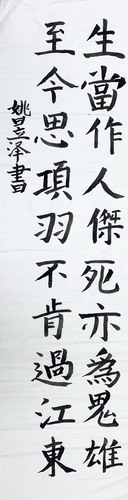 生當作人傑死亦為鬼雄
至今思項羽不肯過江東
姚昱泽書